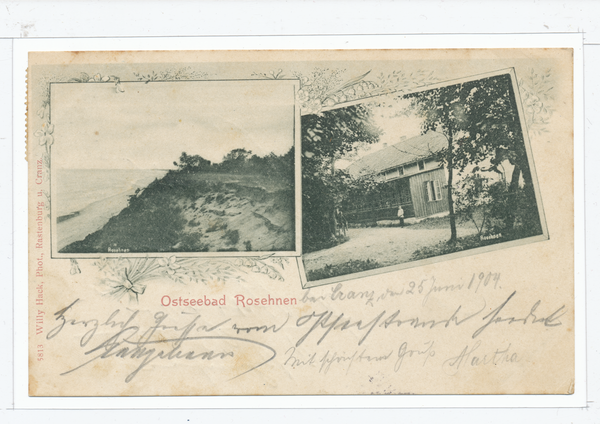 5813 Willy Hack, Phot., Rastenburg u. Cranz.
Rosehnen
Rosehnen
Ostseebad Rosehnen bei Cranz, den 25 Juni 1904.
Herzliche Grüße vom Ostseestrande sendet
Mit schönstem Gruß Martha